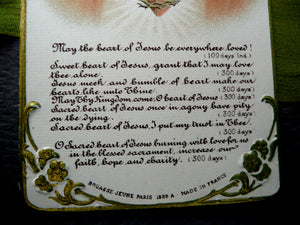 May the heart of Jesus be everywhere loved!
(100 days ind.)
Sweet heart of Jesus, grant that I may love
thee alone. (300 days)
Jesus meek and humble of heart make our
hearts like unto Thine (300 days)
May Thy Kingdom come, O heart of Jesus (300 days)
Sacred heart of Jesus once in agony have pity
on the dying. (300 days)
Sacred heart of Jesus, I put my trust in Thee!
(300 days)
O Sacred heart of Jesus burning with love for us
in the blessed sacrament, increase our
faith, hope and charity. (300 days)
BOUASSE JEUNE PARIS 1338 A. MADE IN FRANCE